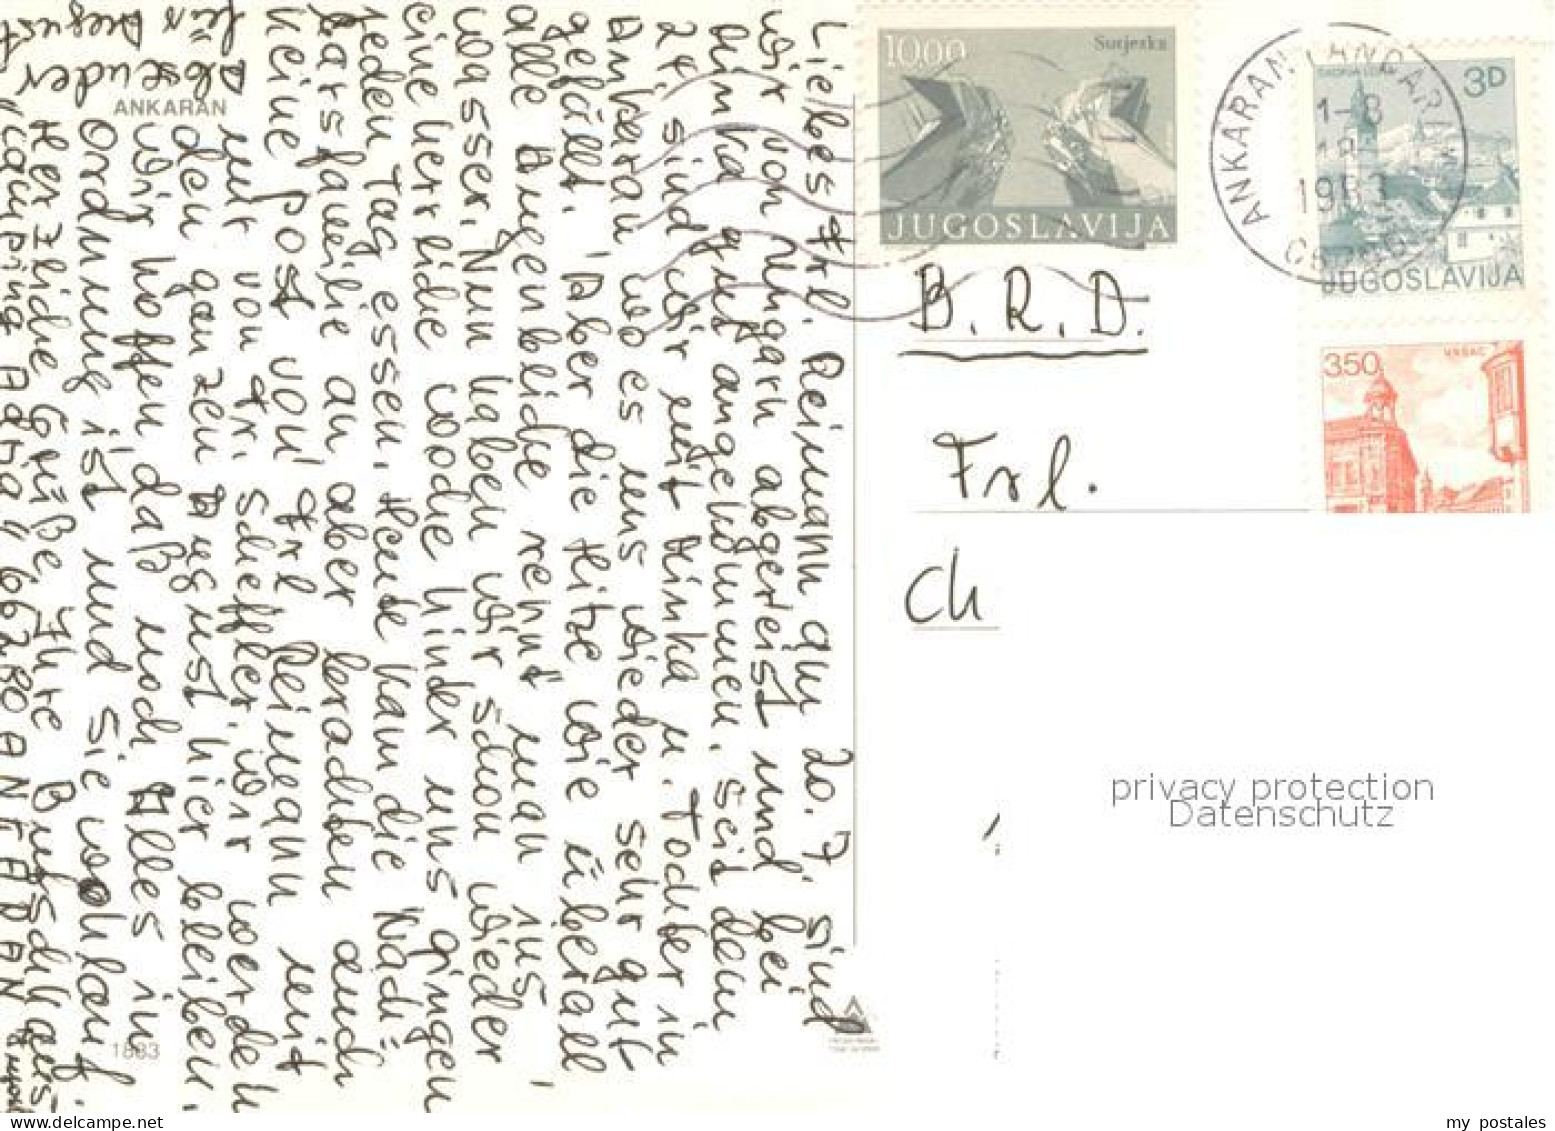 Liebes Frl. Reimann am 20. 7 sind
wir von Ungarn abgereist und bei
Minka gut angekommen. Seit dem
24 sind wir mit Minka u. Tochter in
Ankaran wo es uns wieder sehr gut
gefällt. Aber die Hitze wie überall
alle Augenblicke rennt man ins
Wasser. Nun haben wir schon wieder
eine herrliche Woche hinder uns gingen
jeden Tag essen. Heute kam die Nach=
barsfamilie an aber brachten auch
keine Post von Frl Reimann mit
nur von Fr. Scheffler. wir werden
den ganzen August hier bleiben.
Wir hoffen, daß noch Alles in
Ordnung ist und Sie wohlauf.
Herzliche Grüße Ihre
Camping Adria 66280 ANKARAN
Absender
für August
ANKARAN
1883
1000
Sutjeska
JUGOSLAVIJA
ANKARAN
1983
3D
JUGOSLAVIJA
350
VRŠAC
B. R. D.
Frl.
Ch
privacy protection
Datenschutz
my postales